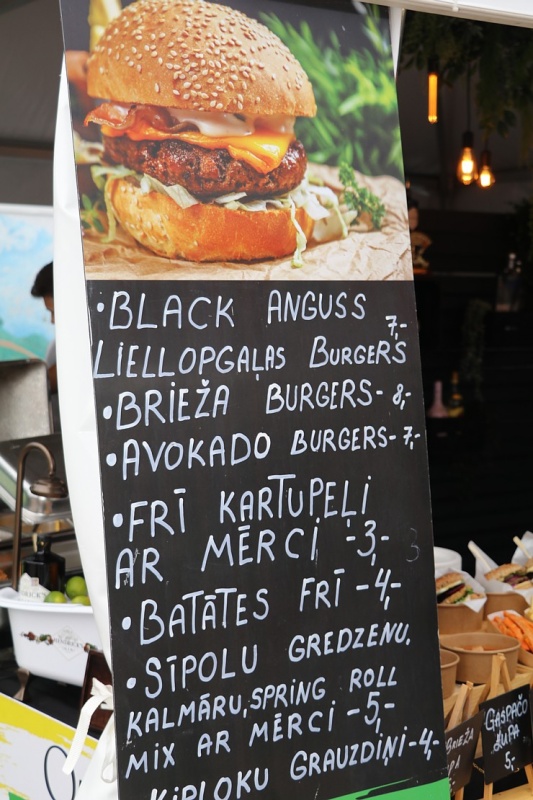 •BLACK ANGUSS
7,-
LIELLOPGAĻAS BURGERS
•BRIEŽA BURGERS- 8,-
•AVOKADO BURGERS-7,-
•FRĪ KARTUPEĻI
AR MĒRCI -3,-
•BATĀTES FRĪ -4,-
•SĪPOLU GREDZENU,
KALMĀRU,SPRING ROLL
MIX AR MĒRCI -5,-
ĶIPLOKU GRAUZDIŅI-4,-
GASPAČO
ZUPA
5,-
BRIEŽA
HENDRICK'S